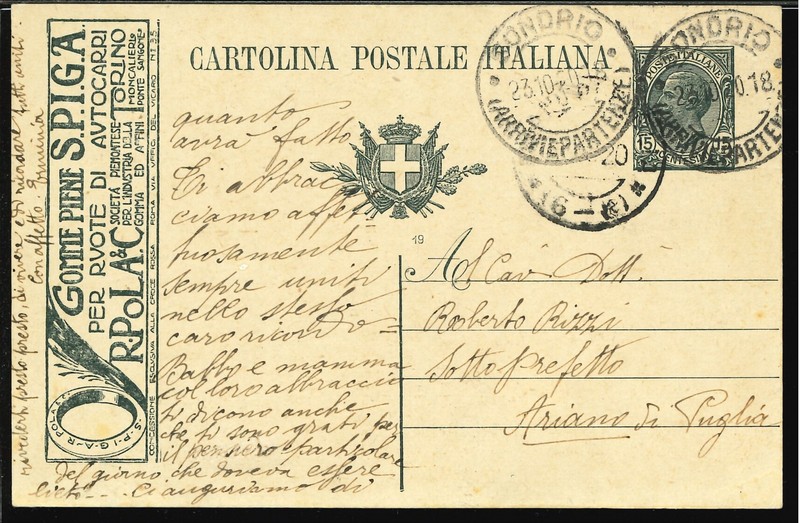 CARTOLINA POSTALE ITALIANA
GOMME PIENE S.P.I.G.A.
PER RUOTE DI AUTOCARRI
R. POLA & C.
SOCIETÀ PIEMONTESE
PER L'INDUSTRIA DELLA
GOMMA ED AFFINI
TORINO
MONCALIERI
PONTE SANGONE
CONCESSIONE ESCLUSIVA ALLA CROCE ROSSA ROMA VIA UFFICI DEL VICARIO N. 35
S-P-I-G-A-R POLA
SONDRIO
23.10.20
(ARRIVI E PARTENZE)
SONDRIO
23.10.20.18
(ARRIVI E PARTENZE)
20
16
POSTE ITALIANE
15 15
CENTESIMI
19
quanto
avrà fatto
Ti abbrac
ciamo affet
tuosamente
sempre uniti
nello stesso
caro ricordo =
Babbo e mamma
col loro abbraccio
ti dicono anche
che ti sono grati per
il pensiero particolare
del giorno che doveva essere
lieto... Ci auguriamo di
rivederti presto presto, di vivere e di ricordare tutti uniti
Con affetto. Erminia
Al Cav. Dott.
Roberto Rizzi
Sotto Prefetto
Ariano di Puglia